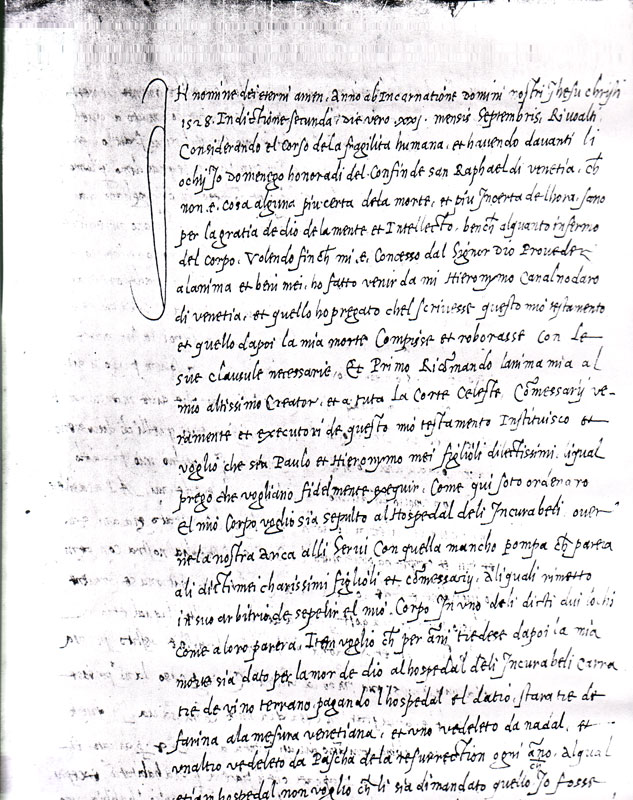 In nomine dei eterni amen. Anno ab Incarnatione domini nostri Jhesu chrysti
1528. Indictione secunda, die vero mensis Septembris, Rivoalti
Considerando el Corso dela fragilita humana, et havendo davanti li
ochij Jo Domenego honoradi del Confin de san Raphael di venetia, ch
non .e. cosa alguna piu certa dela morte, et piu Incerta de lhora, sano
per la gratia de dio de la mente et Intellecto, bench alquanto infermo
del corpo, Volendo fin ch mi .e. Concesso dal Signor Dio Proveder
alanima et beni mei, ho fatto venir da mi Hieronymo Canal nodaro
di venetia, et quello ho pregato chel scrivesse questo mio testamento
et quello dapoi la mia morte Compisse et roborasse con le
sue clausule necessarie, Et Primo Ricomando lanima mia al
mio altissimo Creator, et a tuta La Corte Celeste. Comessarij ve-
ramente et executori de questo mio testamento Instituisco et
voglio che sia Paulo et Hieronymo mei figlioli dilectissimi, liqual
prego che vogliano fidelmente exequir, Come qui soto ordenaro
El mio Corpo voglio sia sepulto al Hospedal deli Incurabeli over
ne la nostra arca alli Servi Con quella mancho pompa ch parera
ali dicti mei charissimi figlioli et comessarij, Ali quali rimetto
in suo arbitrio de sepelir el mio Corpo In uno deli dicti dui lochi
Come a loro parera, Item voglio ch per anni tredese dapoi la mia
morte sia dato per lamor de dio al hospedal deli Incurabeli Carra
tre de vino terrano pagando lhospedal el datio, stara tre de
farina ala mesura venetiana, et uno vedeleto da nadal, et
unaltro vedeleto da Pascha de la resurrection ogni anno, Al qual
etiam hospedal non voglio ch li sia dimandato quello Jo fosse